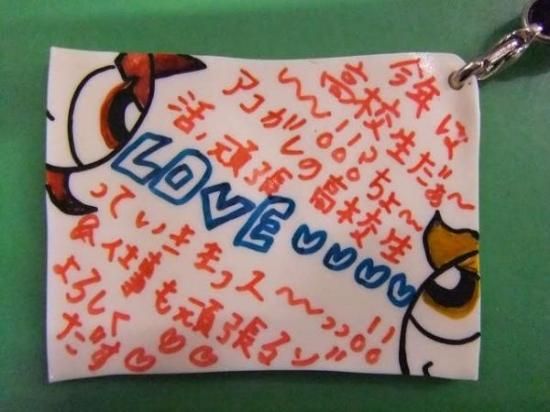 今年は
高校生だぁ〜
〜〜!!?ちょ〜
アコガレの高校生
活,頑張
LOVE♡♡♡♡
っていきまっス〜っっ!!
&仕事も頑張るゾ
よろしく
だす♡♡♡